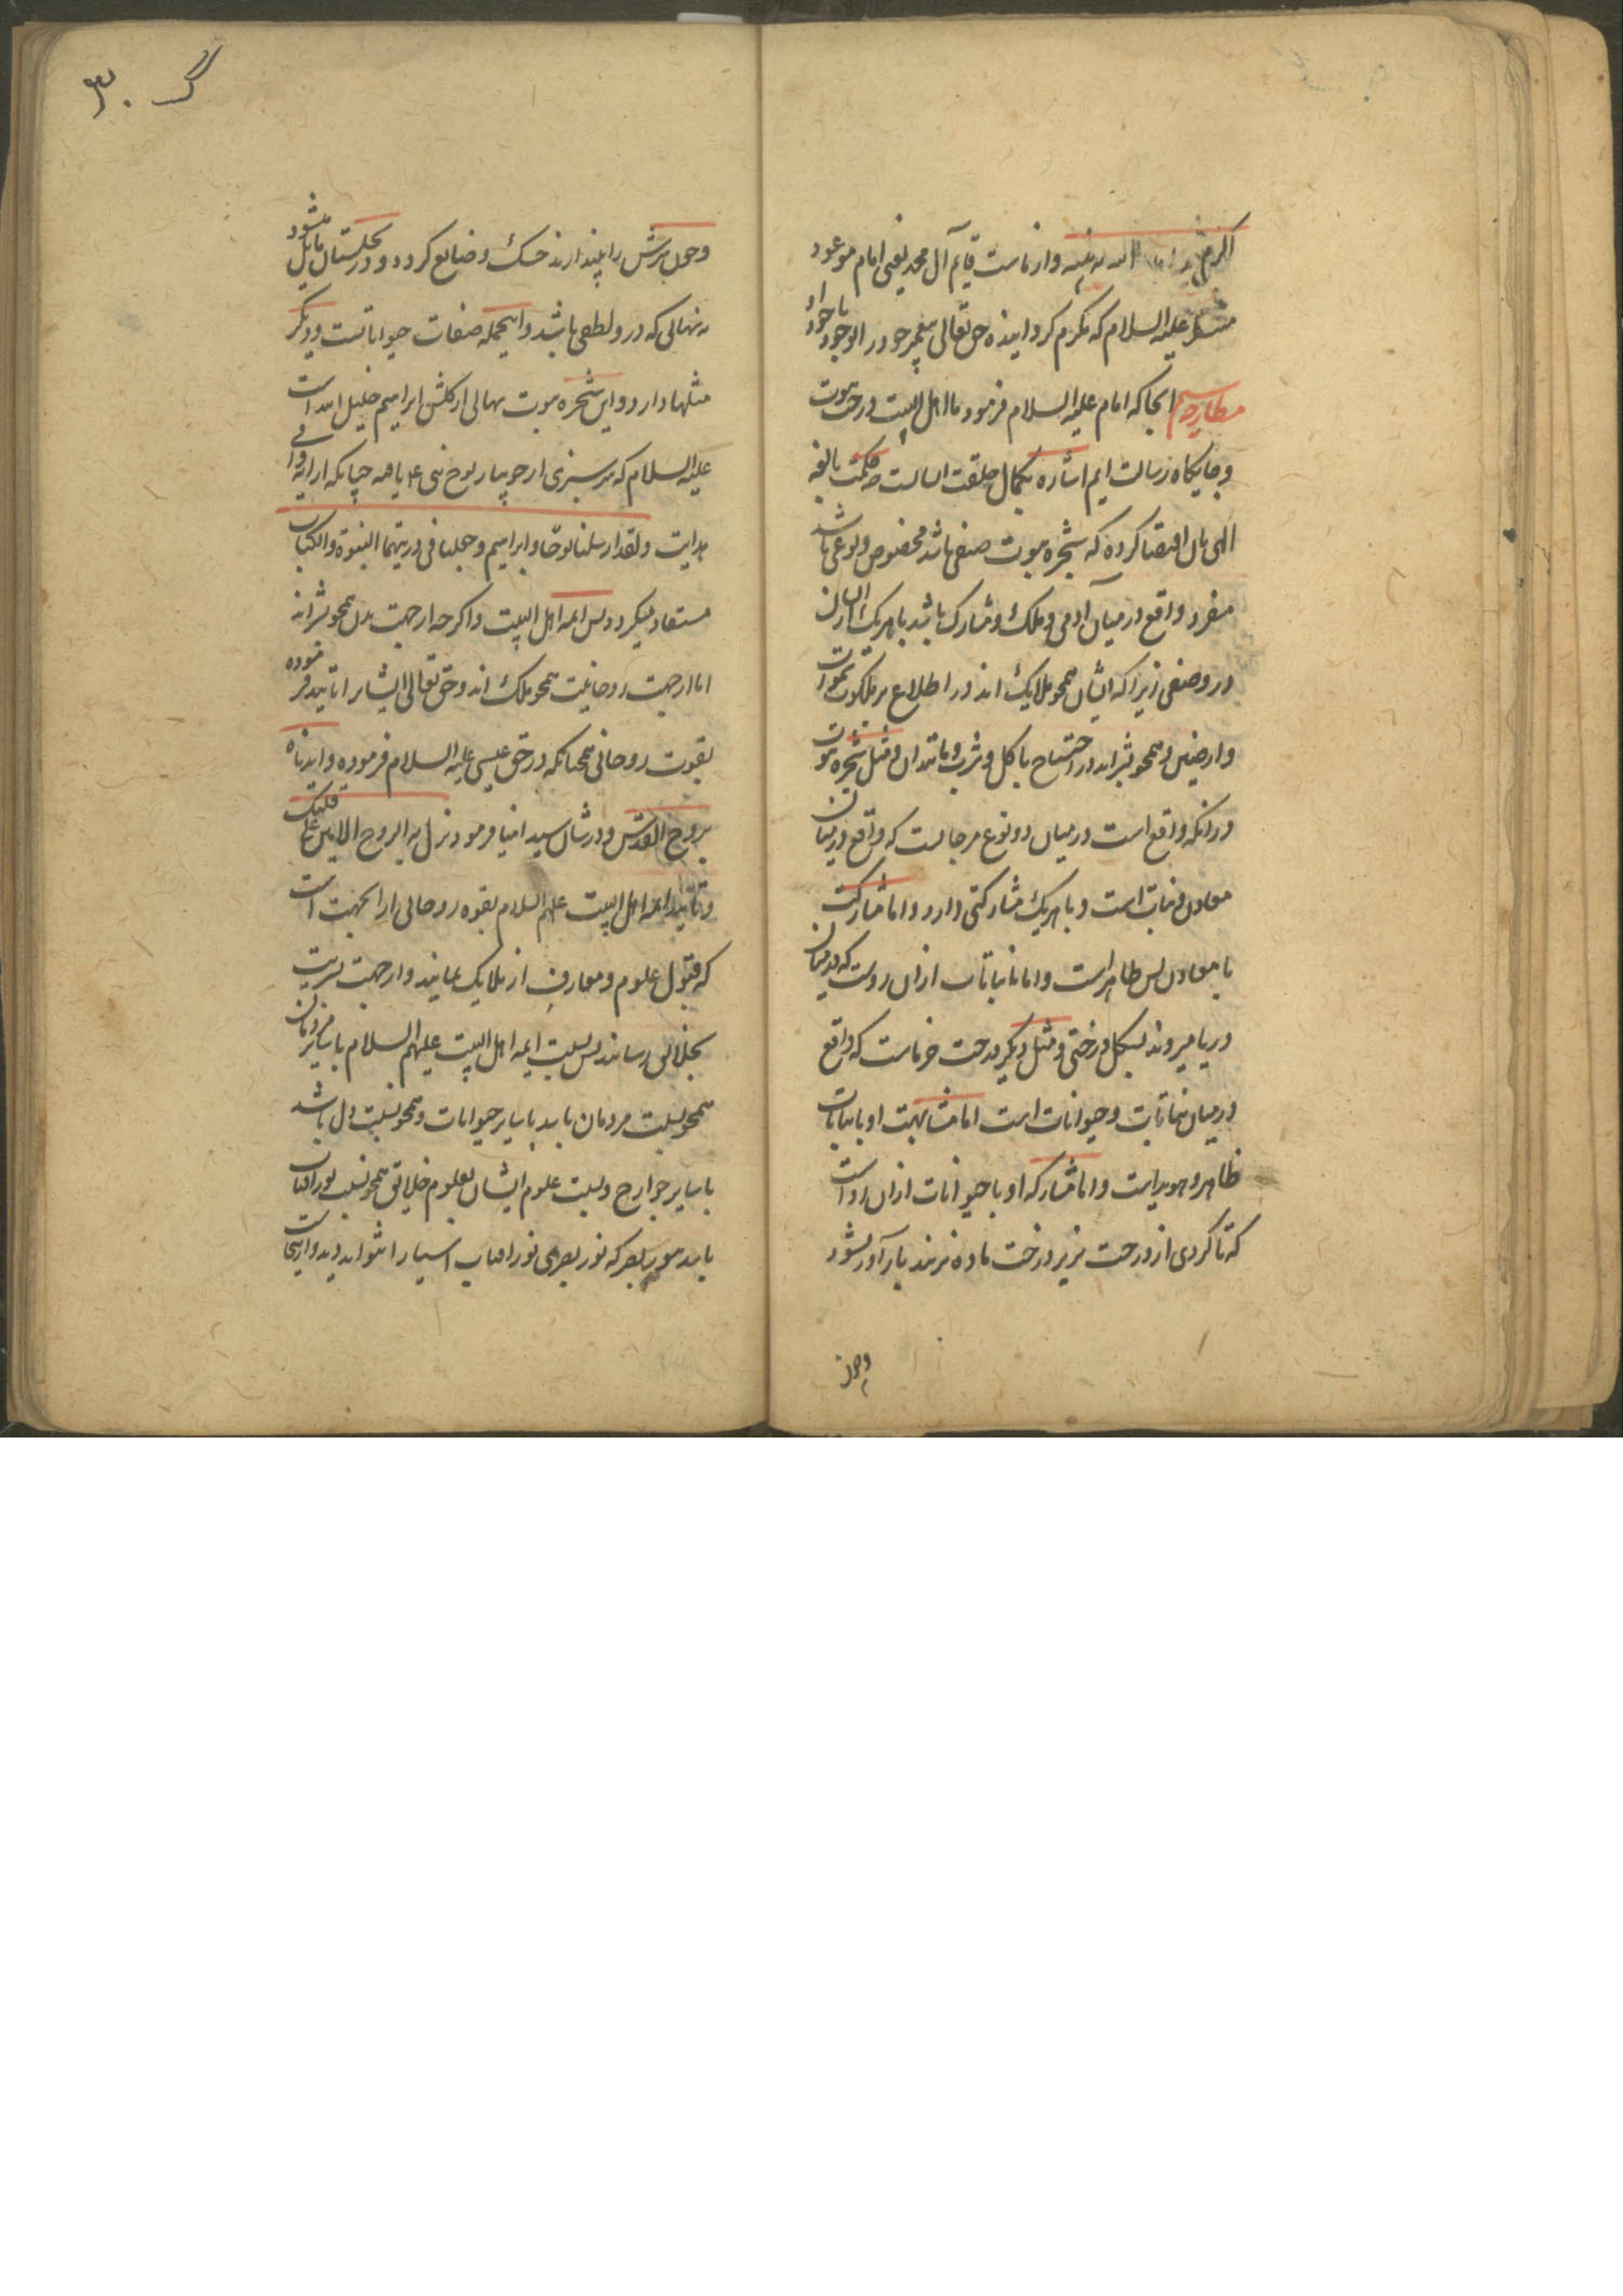 اکرم الله به نبیه وازماست قایم آل محمد یعنی امام موعود
منتظر علیه السلام که مکرم کردانیده حق تعالی پیغمبر خود را بوجود باجود او
انجا که امام علیه السلام فرمود ما اهل البیت درخت نبوت
وجایکاه رسالت ایم اشاره بکمال خلقت ایشانست چه حکمت بالغه
الهی بان اقتضا کرده که شجره نبوت صنفی باشد مخصوص ونوعی باشد
منفرد واقع درمیان آدمی وملک ومشارک باشد باهریک ازایشان
در وصفی زیرا که ایشان همچو ملایک اند در اطلاع بر ملکوت سموات
وارضین وهمچو بشراند در احتیاج باکل وشرب ومانند ان ومثل شجره نبوت
درانکه واقع است درمیان دو نوع مرجانست که واقع درمیان
معادن ونبات است وباهریک مشارکتی دارد واما مشارکت
با معادن پس ظاهر است واما با نباتات ازان روست که درمیان
دریا میروند بشکل درختی ومثل دیگر درخت خرماست که واقع
درمیان نباتات وحیوانات است اما مشابهت او بانباتات
ظاهر وهویداست واما مشارکه او باحیوانات ازان رو است
که تا کردی از درخت نر بر درخت ماده نزند بارآور نشود
وچون
گ ۳۰
وچون سرش را بیندازند خشک وضایع کردد ودر نخلستان مایل میشود
به نهالی که درو لطفی باشد واینجمله صفات حیواناتست ودیکر
مثلها دارد واین شجره نبوت نهالی از کلشن ابراهیم خلیل الله است
علیه السلام که سرسبزی از جویبار نوح نبی علیه یافته چنانکه از آیه وافی
هدایت ولقد ارسلنا نوحا وابراهیم وجعلنا فی ذریتهما النبوة والکتاب
مستفاد میکردد پس ائمه اهل البیت واکرچه از جهت بدن همچو بشراند
اما از جهت روحانیت همچو ملک اند وحق تعالی ایشانرا تایید فرموده
بقوت روحانی همچنانکه در حق عیسی علیه السلام فرموده وایدناه
بروح القدس ودرشان سید انبیا فرمود نزل به الروح الامین علی قلبک
وتایید ائمه اهل البیت علیهم السلام بقوه روحانی از انجهت است
که قبول علوم ومعارف از ملایک نمایند واز جهت بشریت
بخلایق رسانند پس نسبت ایمه اهل البیت علیهم السلام باسایر مردمان
همچو نسبت مردمان باشد باسایر حیوانات وهمچو نسبت دل باشد
باسایر جوارح ونسبت علوم ایشان بعلوم خلایق همچو نسبت نور آفتاب
باشد بنور بصر که نور بصر بی نور آفتاب اشیا را نتواند دید وازینجا